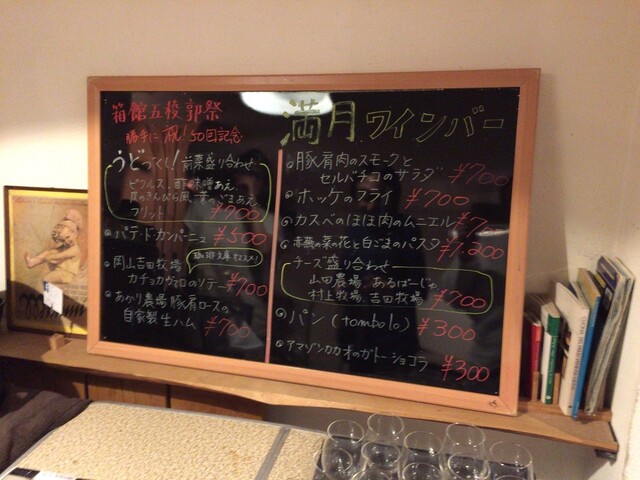 箱館五稜郭祭
勝手に祝!50回記念
うどづくし!前菜盛り合わせ
ピクルス、酢味噌あえ、
皮のきんぴら風、葉のごまあえ、
フリット ¥700
パテ・ド・カンパーニュ ¥500
岡山吉田牧場
カチョカヴァロのソテー ¥700
あかり農場豚肩ロースの
自家製生ハム ¥700
満月ワインバー
豚肩肉のスモークと
セルバチコのサラダ ¥700
ホッケのフライ ¥700
カスベのほほ肉のムニエル ¥7
赤蕪の菜の花と白ごまのパスタ ¥1,200
チーズ盛り合わせ
山田農場、あるぱーじゅ
村上牧場、吉田牧場 ¥700
パン(tombolo) ¥300
アマゾンカカオのガトーショコラ
¥300